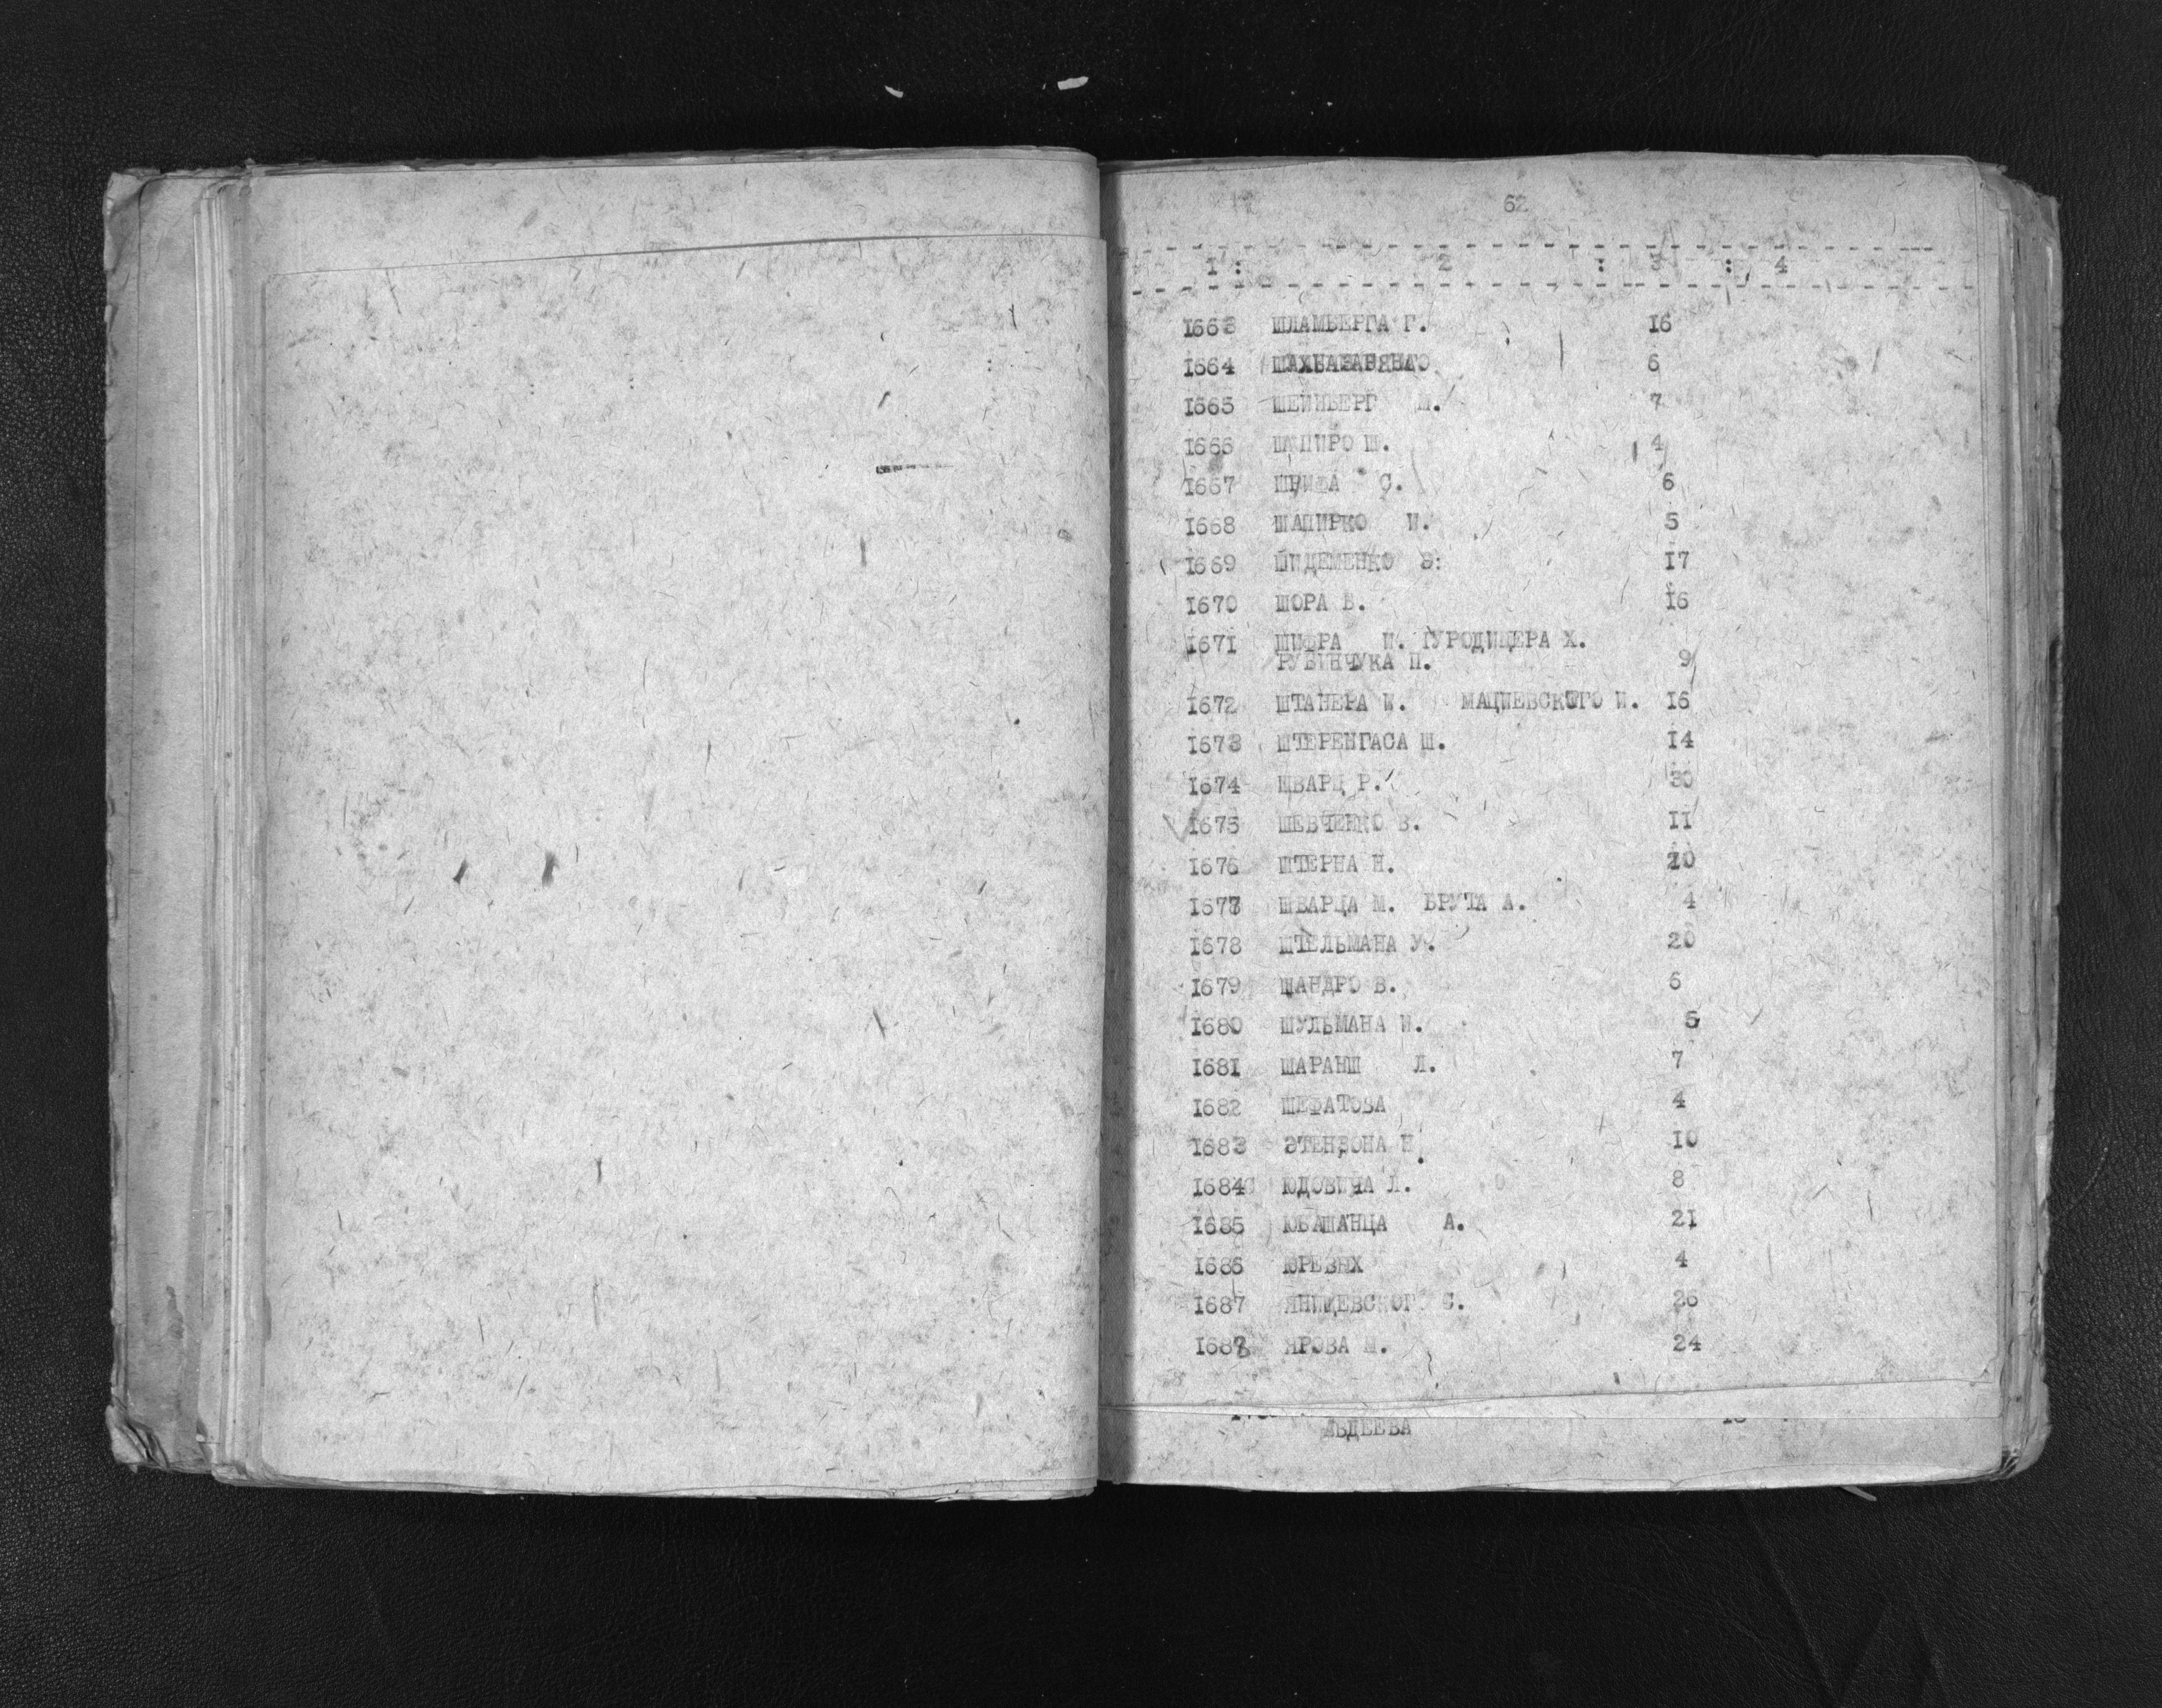 62
1 : 2 : 3 : 4
1663 ШЛАМБЕРГА Г. 16
1664 6
1665 ШЕЙНБЕРГ Ш. 7
1666 ШАПИРО Ш. 4
1667 ШРИФА С. 6
1668 ШАПИРКО И. 5
1669 ШИДЕМЕНКО Э: 17
1670 ШОРА В. 16
1671 ШИФРА И. ГУРОДИЩЕРА Х.
РУБИНЧУКА П. 9
1672 ШТАНЕРА И. МАЦИЕВСКОГО И. 16
1673 ШТЕРЕНГАСА Ш. 14
1674 ШВАРЦ Р. 30
1675 ШЕВЧЕНКО В. 11
1676 ШТЕРНА Н. 20
1677 ШВАРЦА М. БРУТА А. 4
1678 ШТЕЛЬМАНА У. 20
1679 ШАНДРО В. 6
1680 ШУЛЬМАНА И. 5
1681 ШАРАНШ Л. 7
1682 ШЕФАТОВА 4
1683 ЭТЕНЗОНА Н. 10
1684 ЮДОВИЧА Л. 8
1685 ЮВАШАНЦА А. 21
1686 ЮРЕВЫХ 4
1687 ЯНИШЕВСКОГ С. 26
1688 ЯРОВА Ш. 24
АВДЕЕВА